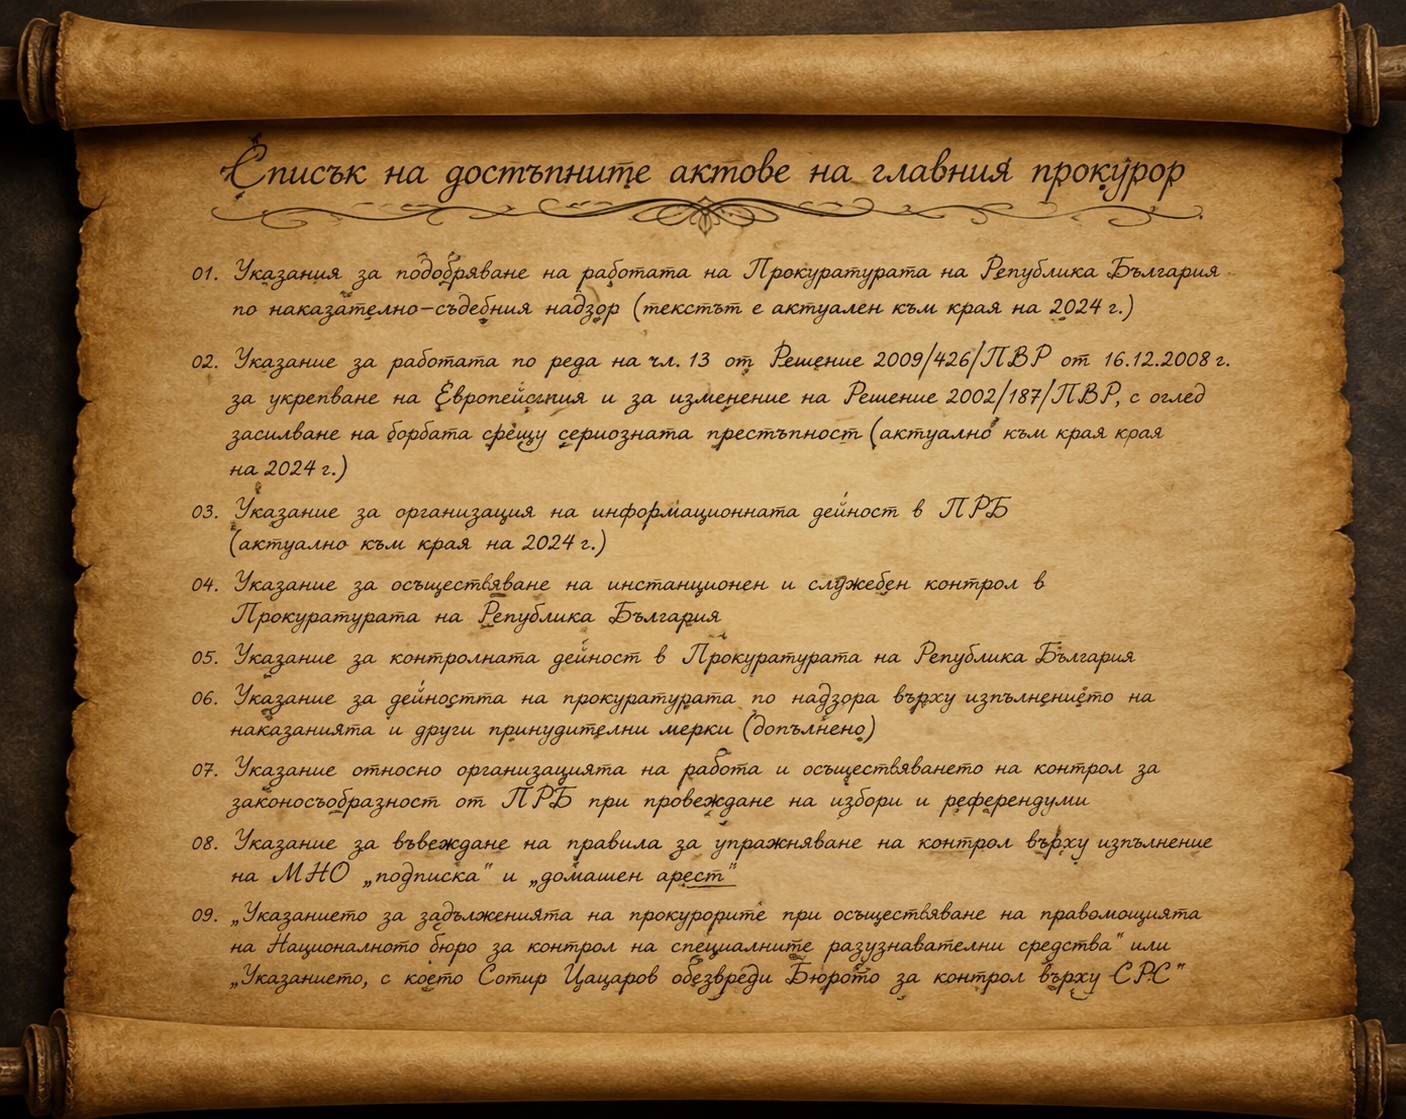 Списък на достъпните актове на главния прокурор
01. Указания за подобряване на работата на Прокуратурата на Република България
по наказателно-съдебния надзор (текстът е актуален към края на 2024 г.)
02. Указание за работата по реда на чл. 13 от Решение 2009/426/ПВР от 16.12.2008 г.
за укрепване на и за изменение на Решение 2002/187/ПВР, с оглед
засилване на борбата срещу сериозната престъпност (актуално към края края
на 2024 г.)
03. Указание за организация на информационната дейност в ПРБ
(актуално към края на 2024 г.)
04. Указание за осъществяване на инстанционен и служебен контрол в
Прокуратурата на Република България
05. Указание за контролната дейност в Прокуратурата на Република България
06. Указание за дейността на прокуратурата по надзора върху изпълнението на
наказанията и други принудителни мерки (допълнено)
07. Указание относно организацията на работа и осъществяването на контрол за
законосъобразност от ПРБ при провеждане на избори и референдуми
08. Указание за въвеждане на правила за упражняване на контрол върху изпълнение
на МНО „подписка" и „домашен арест"
09. „Указанието за задълженията на прокурорите при осъществяване на правомощията
на Националното бюро за контрол на специалните разузнавателни средства" или
„Указанието, с което Сотир Цацаров обезвреди Бюрото за контрол върху СРС"